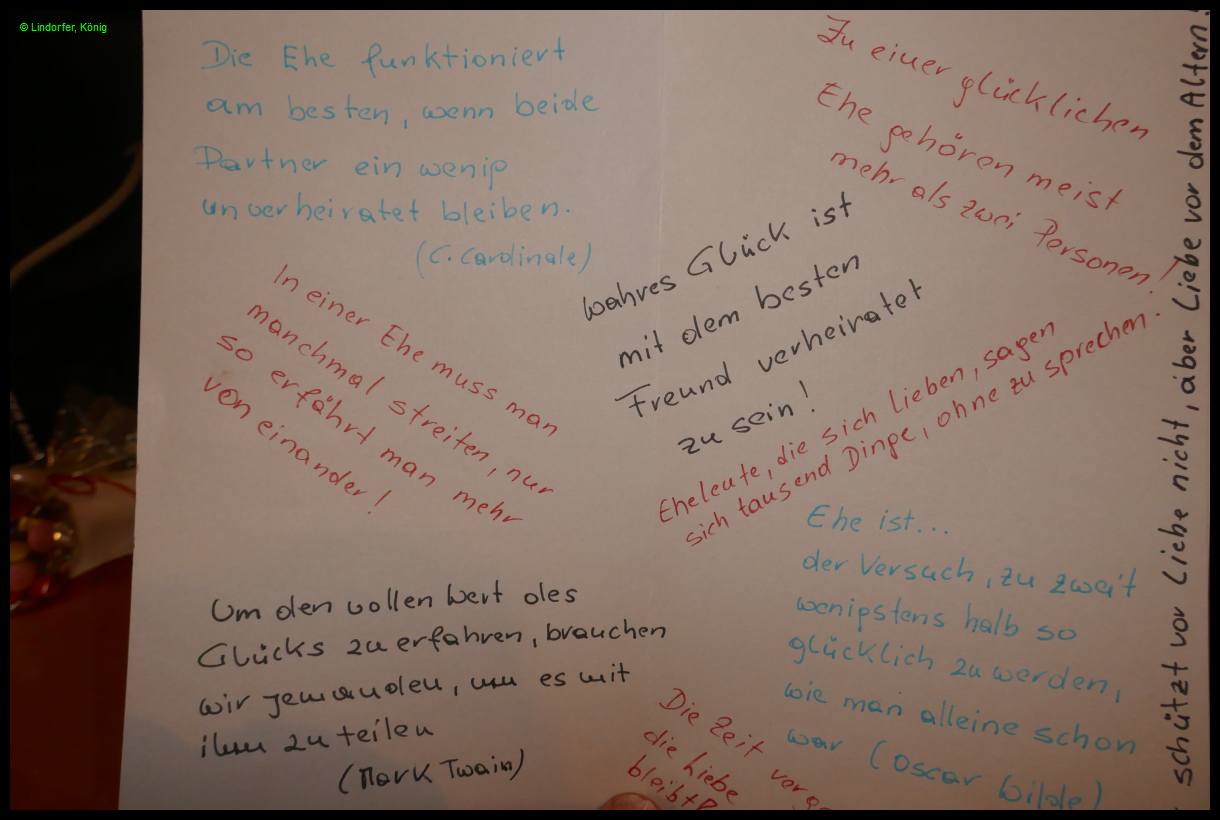 © Lindorfer, König
Die Ehe funktioniert
am besten, wenn beide
Partner ein wenig
unverheiratet bleiben.
(C. Cardinale)
Zu einer glücklichen
Ehe gehören meist
mehr als zwei Personen!
wahres Glück ist
mit dem besten
Freund verheiratet
zu sein!
In einer Ehe muss man
manchmal streiten, nur
so erfährt man mehr
von einander!
Eheleute, die sich lieben, sagen
sich tausend Dinge, ohne zu sprechen.
Ehe ist...
der Versuch, zu zweit
wenigstens halb so
glücklich zu werden,
wie man alleine schon
war (Oscar Wilde)
Um den vollen Wert des
Glücks zu erfahren, brauchen
wir jemanden, um es mit
ihm zu teilen
(Mark Twain)
Die Zeit
die Liebe
bleibt
schützt vor Liebe nicht, aber Liebe vor dem Altern!